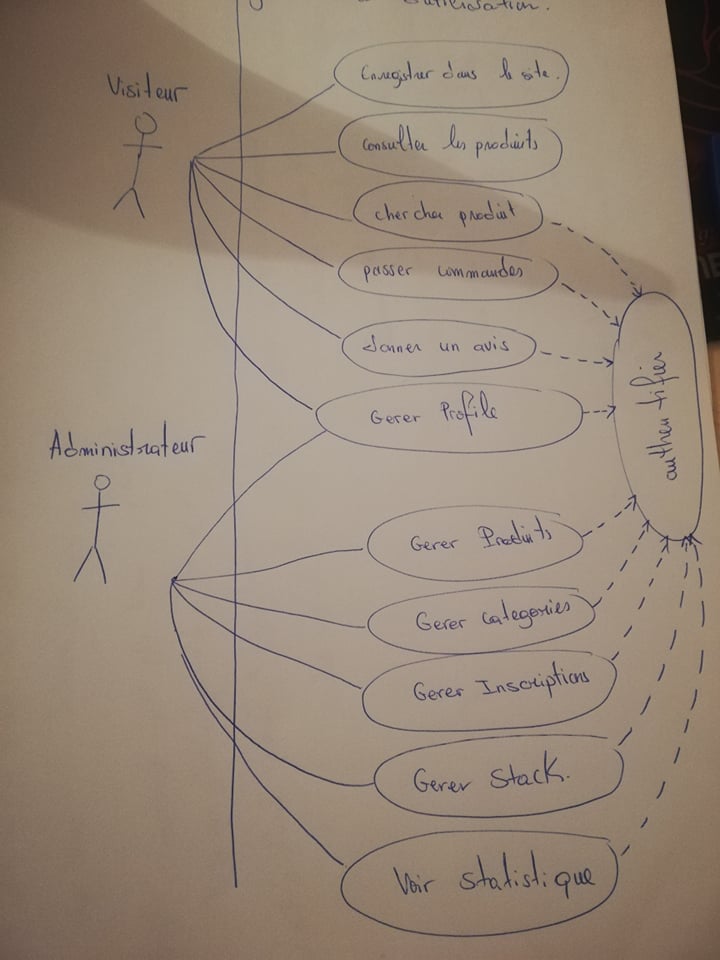 d'utilisation.
Visiteur
Enregistrer dans le site.
Consulter les produits
chercher produit
passer commandes
donner un avis
Gerer Profile
authentifier
Administrateur
Gerer Produits
Gerer categories
Gerer Inscriptions
Gerer Stack.
Voir statistique